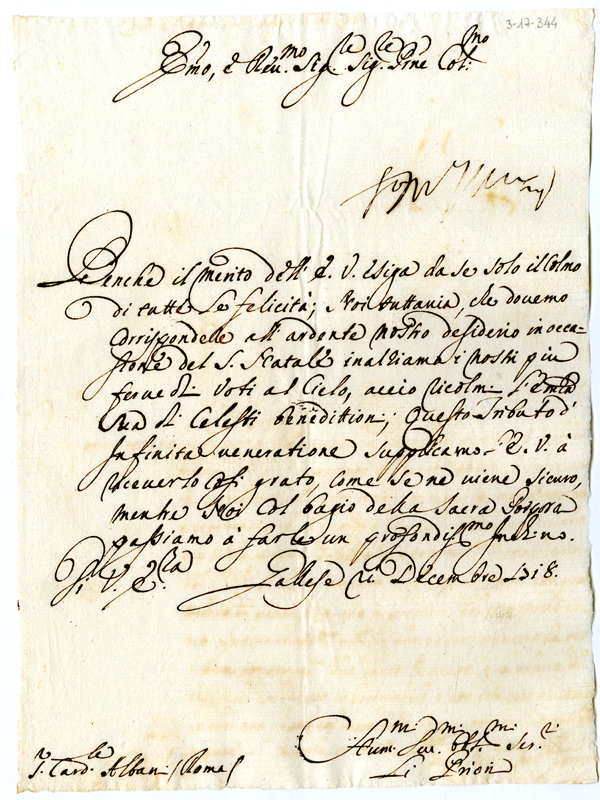 3-17-344
Emo, e Reu.mo Sig.re Sig.re Prne Col.mo
Benche il merito dell' E. V. esiga da se solo il Colmo
di tutte le felicità; Noi tuttavia, che dovemo
Corrispondere all' ardente nostro desiderio in occa-
sione del S. Natale inalziamo i nostri più
ferue di Voti al Cielo, accio ricolmi l' Emza
sua di Celesti beneditioni; Questo Tributo d'
Infinita veneratione supplicamo l' E. V. à
riceuerlo grato, come se ne viene sicuro,
mentre Noi Col bagio della Sacra Porpora
passiamo à farle un profondiss.mo Inchino.
Di V. E.za Gallese Decembre 1718.
Hum.mi Deu.mi obl.mi Ser.ri
Li Priori
S. Card.le Albani (Roma)